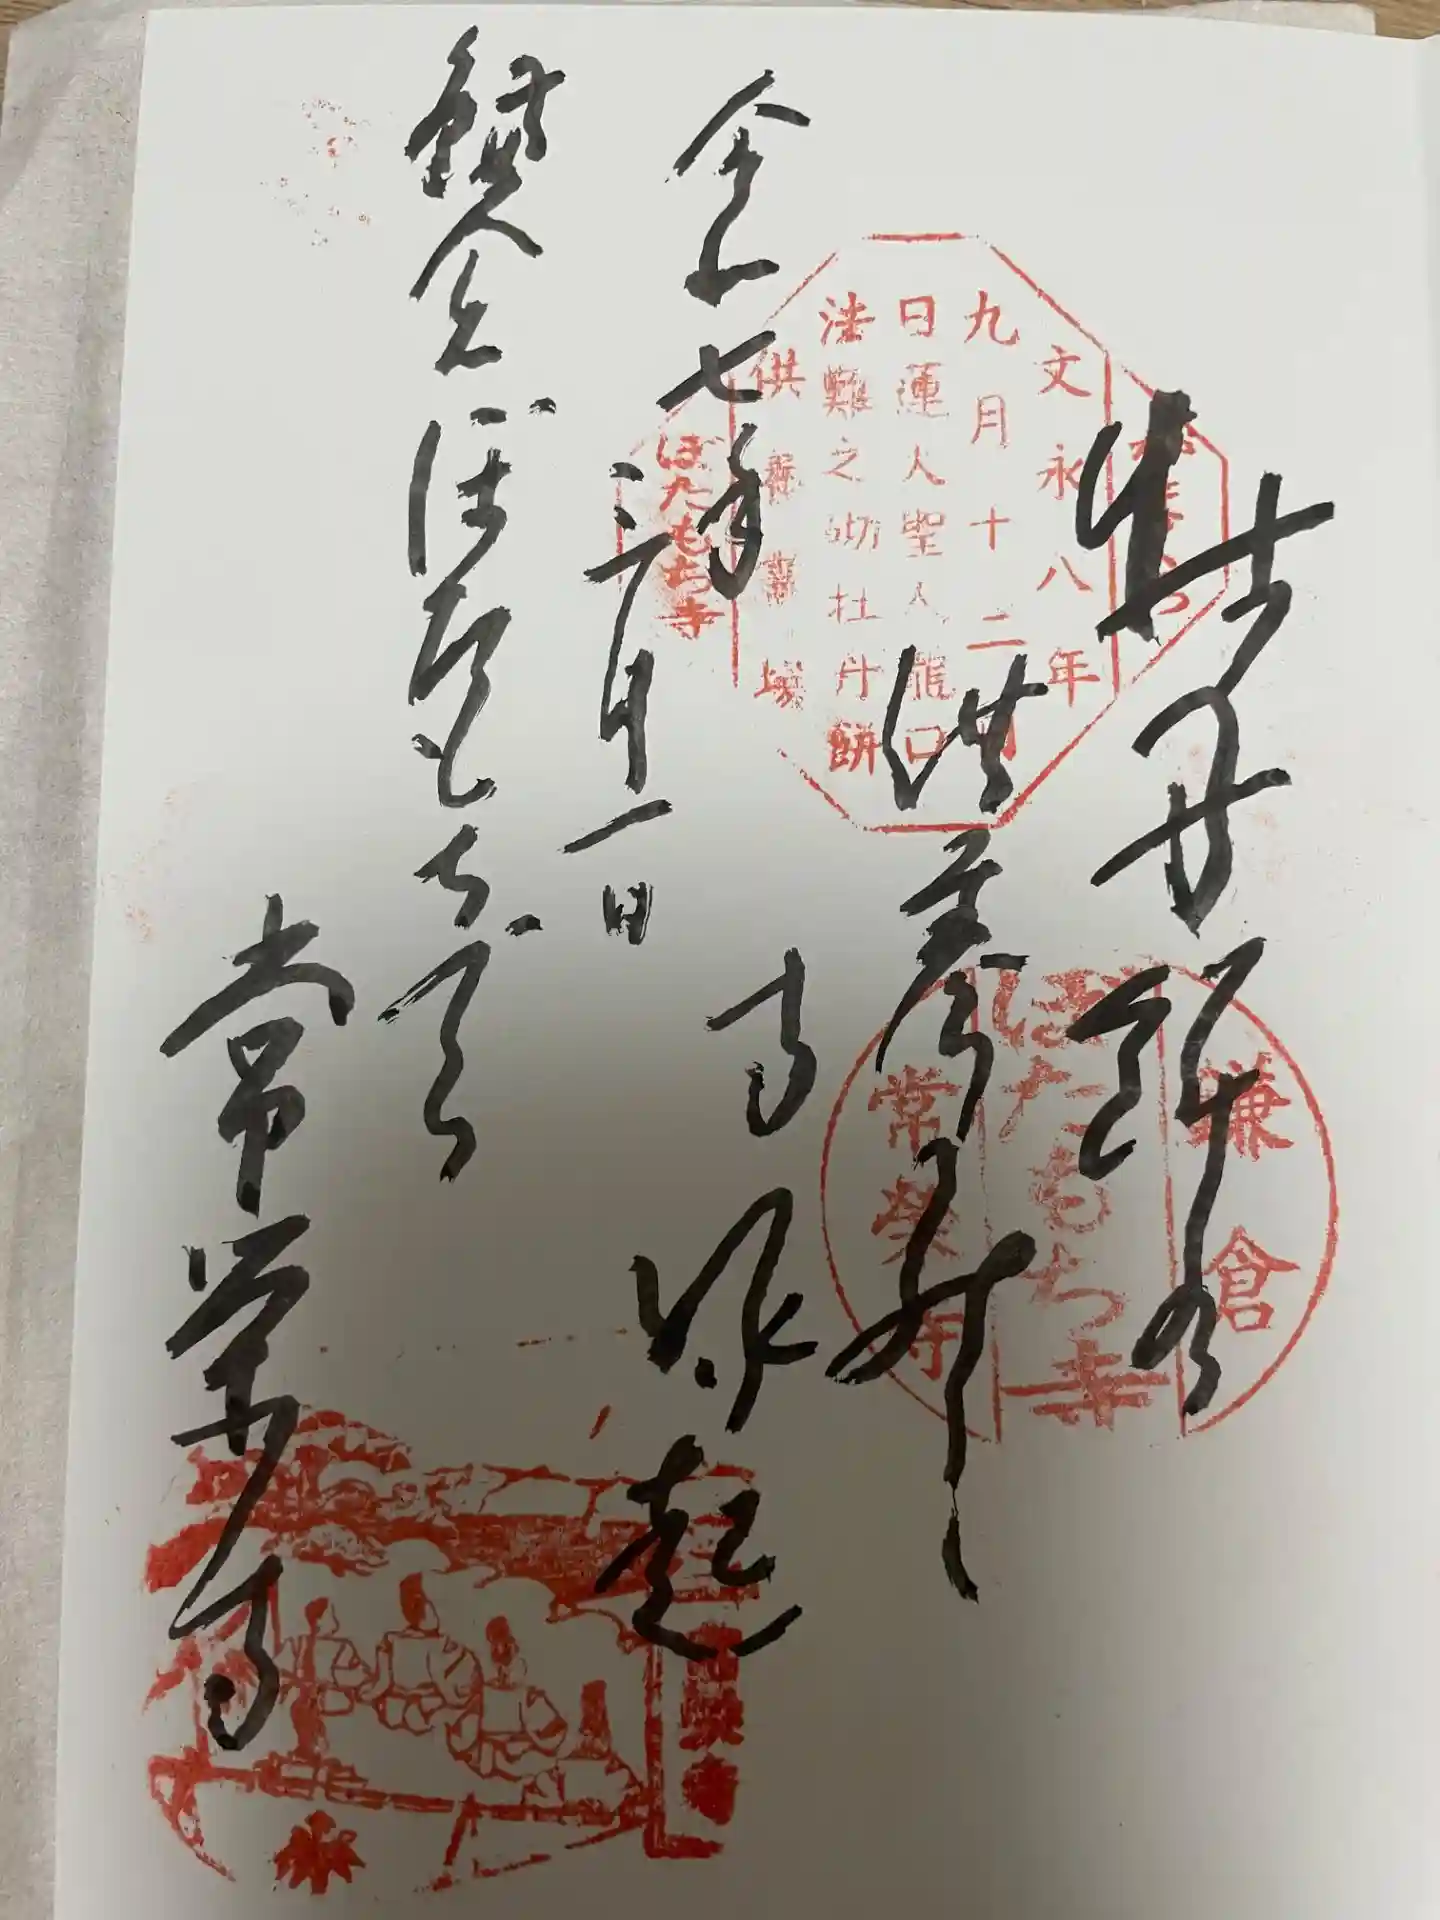 牡丹餅
供養
寺
起
令和七年
三月一日
鎌倉ぼたもち寺
常栄寺
文永八年
九月十二日
日蓮大聖人龍口
法難之砌牡丹餅
供養霊場
ぼたもち寺
鎌倉
ぼたもち寺
常榮寺